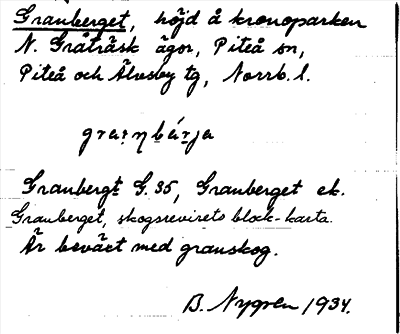 Granberget, höjd å kronoparken
N. Gråträsk ägor, Piteå sn,
Piteå och Älvsby tg, Norrb. l.
Granbergt G. 35, Granberget ek.
Granberget, skogsrevirets block-karta.
Är beväxt med granskog.
B. Nygren 1934.